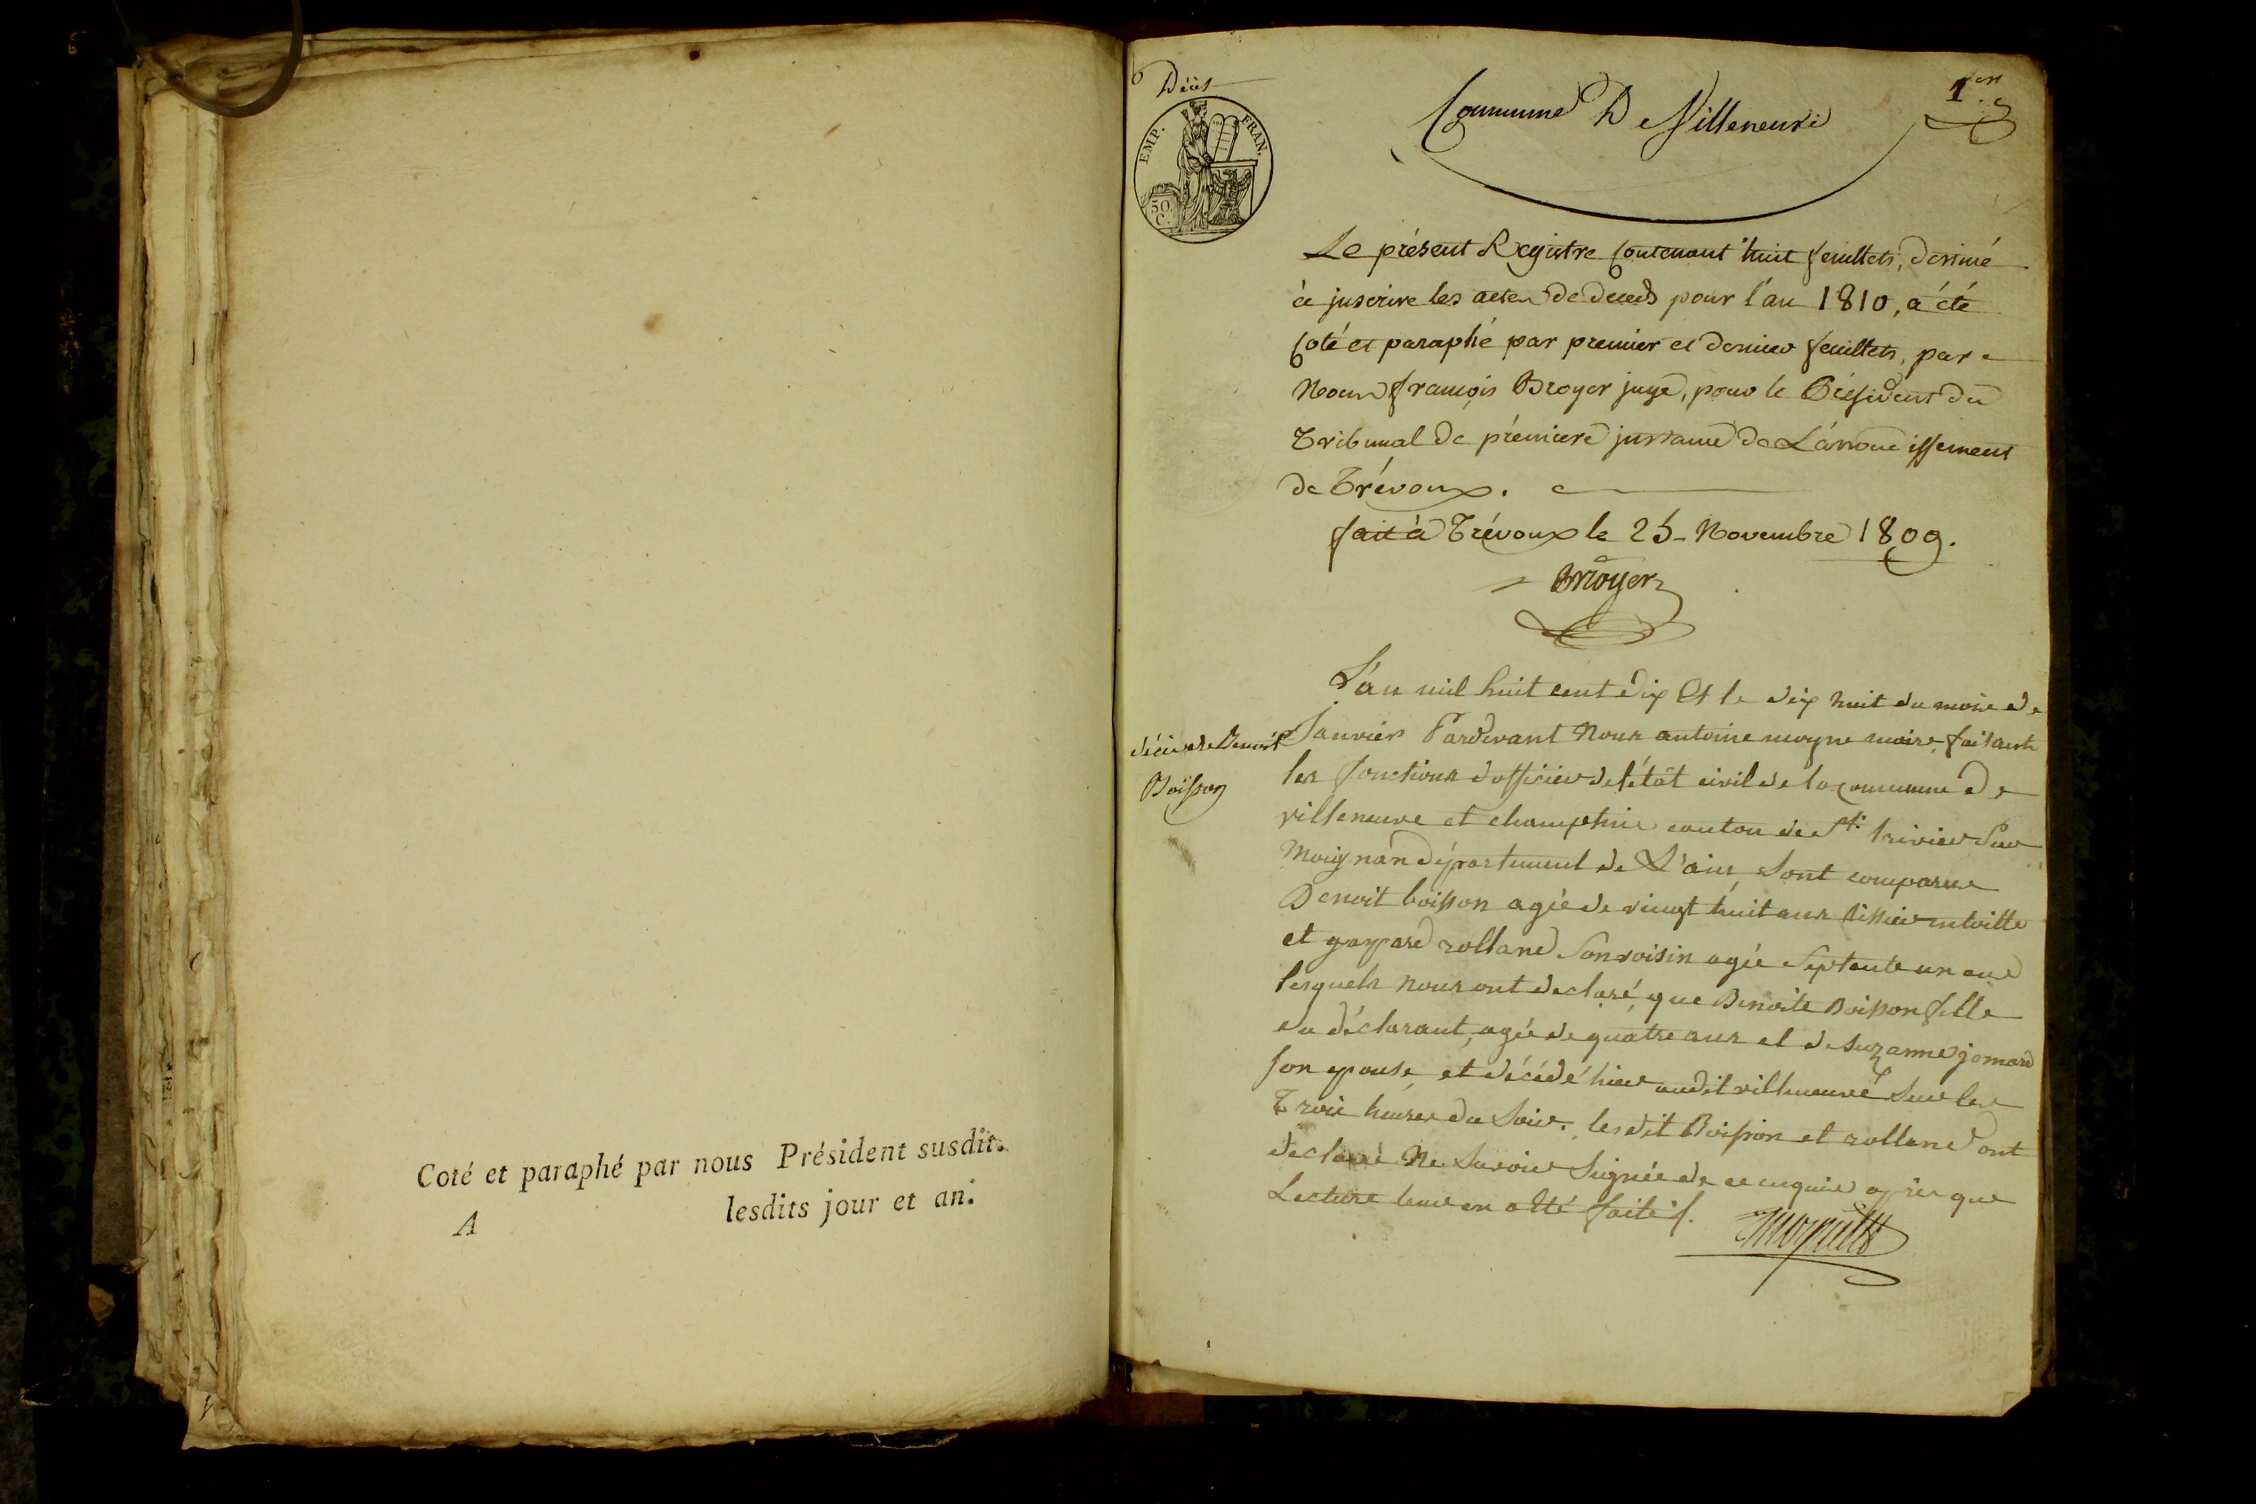 Coté et paraphé par nous Président susdit.
A lesdits jour et an.
Décès
EMP. FRAN.
50 C.
Commune De Villeneuve
1er
Le présent Registre contenant huit feuillets, destiné
à inscrire les actes de décès pour l'an 1810, a été
coté et paraphé par premier et dernier feuillets, par
Nous françois Broyer juge, pour le Président du
Tribunal de premiere instance de L'arrondissement
de Trévoux.
fait à Trévoux le 25 Novembre 1809.
Broyer
L'an mil huit cent dix Et le dix huit du mois de
Janvier Pardevant Nous antoine moyne maire faisant
les fonctions d'officier de l'état civil de la commune de
villeneuve et champthin canton de St. trivier Sur
Moignan département de L'ain, Sont comparus
Benoit boisson agée de vingt huit ans tissier en toille
et gaspard rolland Son voisin agée Septente un ans
lesquels nous ont declaré, que Benoite Boisson fille
du déclarant, agée de quatre ans et de Suzanne jomard
son epouse, et décédé hier audit villeneuve Sur les
Trois heures du Soir. lesdit Boisson et rolland ont
declaré Ne Savoir Signée de ce enquis apres que
Lecture leur en a Eté faite.
décès de Benoit
Boisson